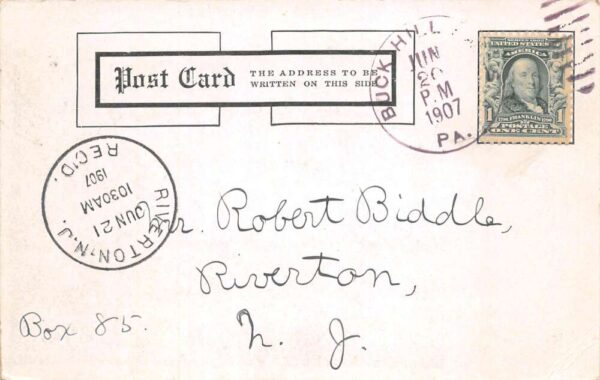 Post Card
THE ADDRESS TO BE
WRITTEN ON THIS SIDE
BUCK HILL
JUN
20
P.M
1907
PA.
UNITED STATES
AMERICA
1 FRANKLIN 1
POSTAGE
ONE CENT
RIVERTON, N.J.
JUN 21
1030AM
1907
REC'D.
Mr. Robert Biddle,
Riverton,
N. J.
Box 85.